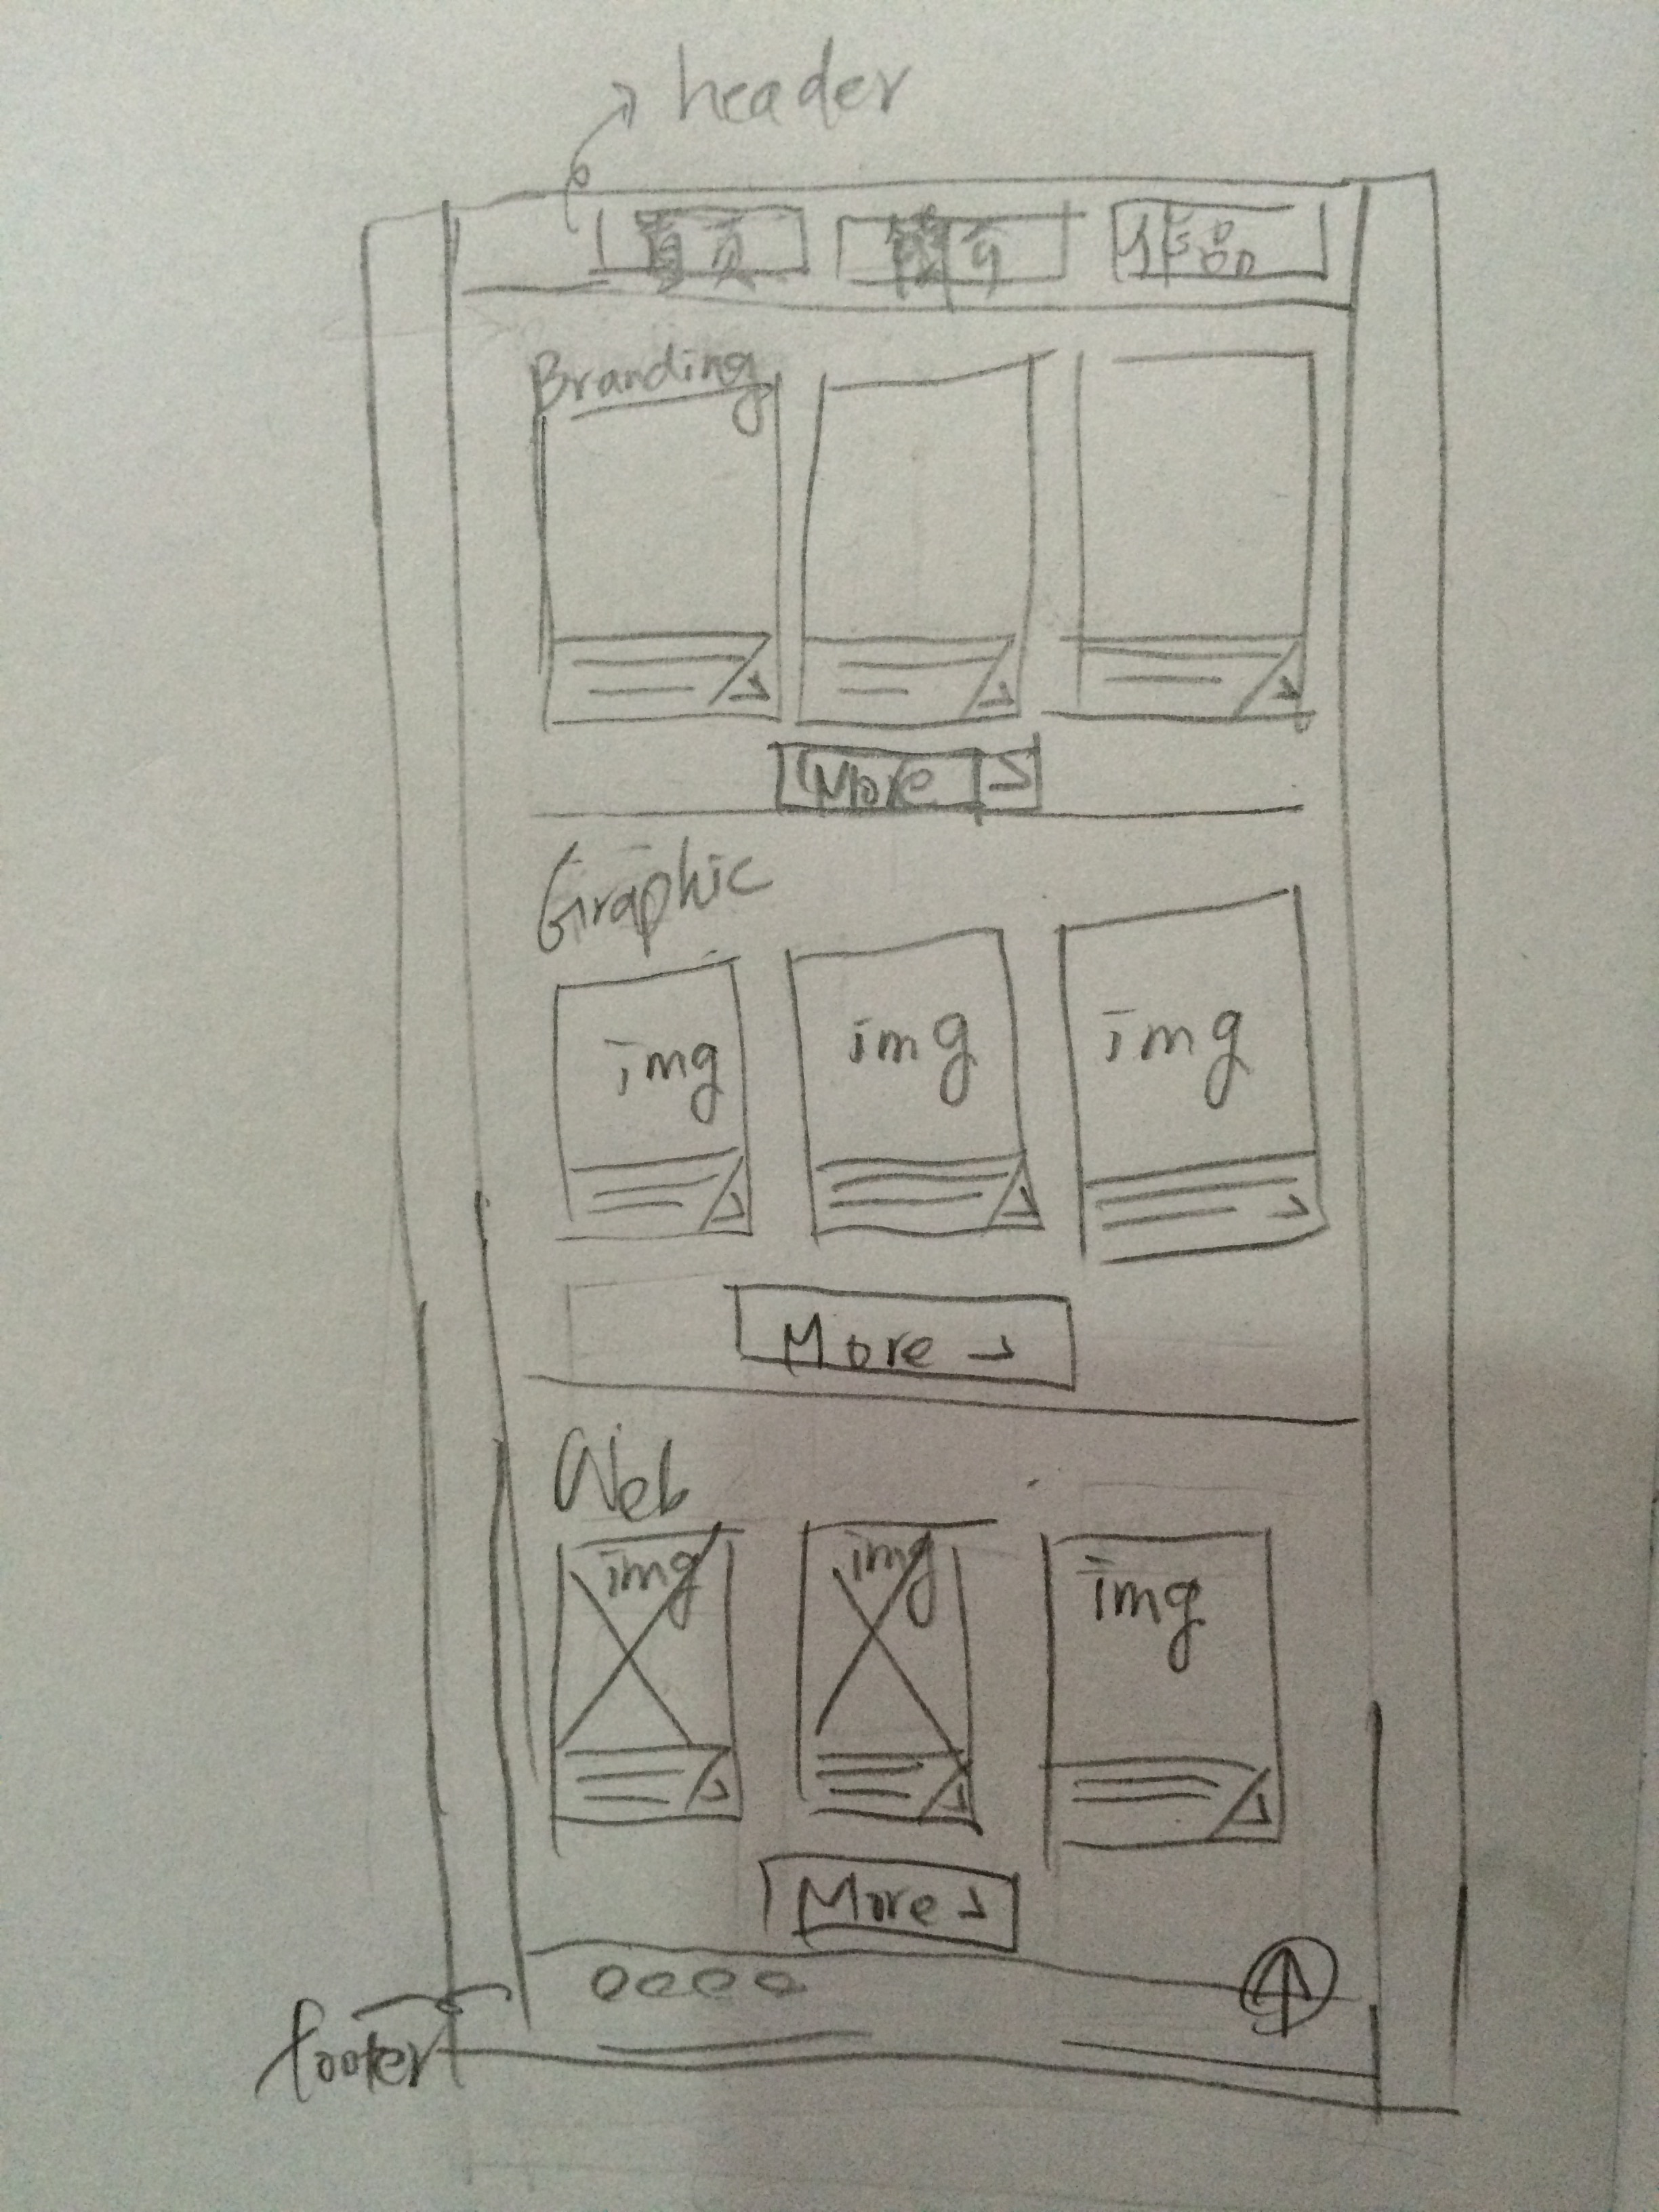 header
首页 作品
Branding
More
Graphic
img img img
More
Web
img img img
More
footer